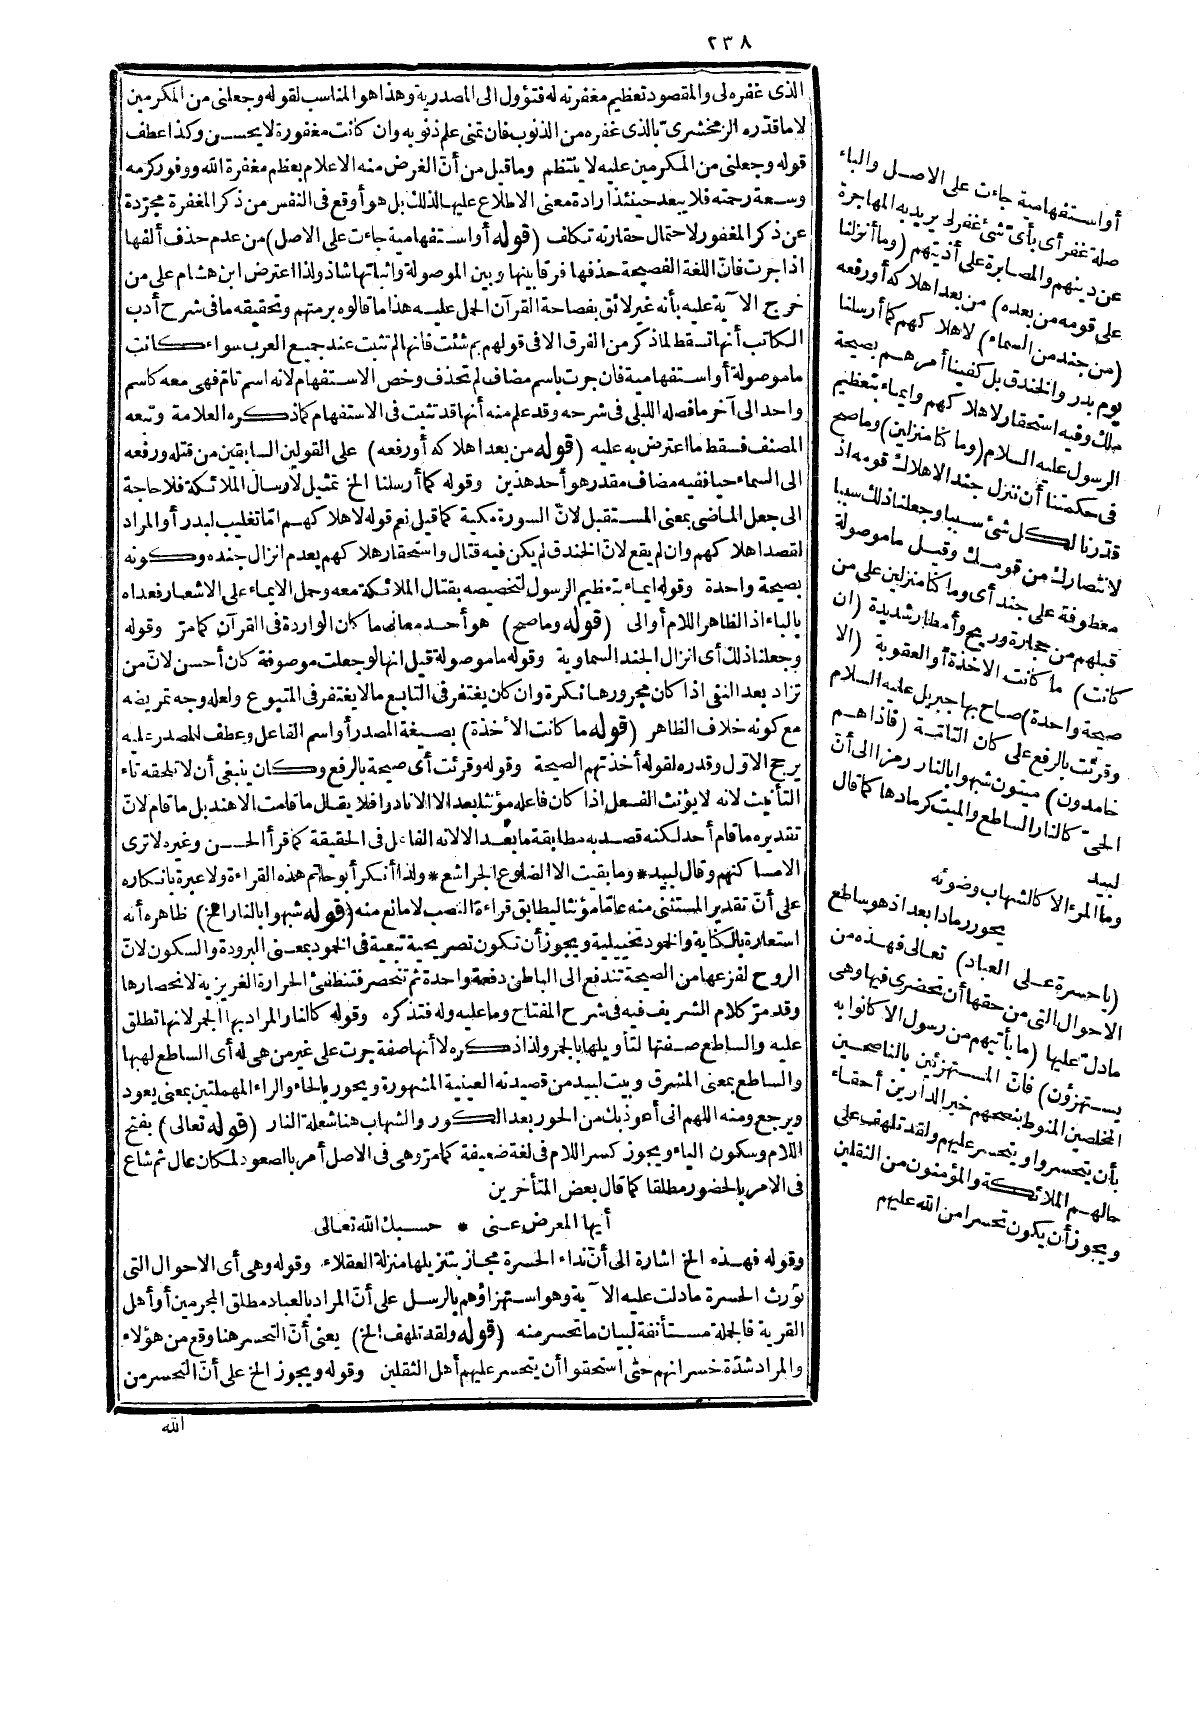 ٢٣٨
الذى غفره لى والمقصود تعظيم مغفرته له فتؤول الى المصدرية وهذا هو المناسب لقوله وجعلنى من المكرمين
لا ما قدّره الزمخشرىّ بالذى غفره من الذنوب فان تمنى علم ذنوبه وان كانت مغفورة لا يحسن وكذا عطف
قوله وجعلنى من المكرمين عليه لا ينتظم وما قيل من أنّ الغرض منه الاعلام بعظم مغفرة الله ووفور كرمه
وسعة رحمته فلا يبعد حينئذ ارادة معنى الاطلاع عليها لذلك بل هو أوقع فى النفس من ذكر المغفرة مجرّدة
عن ذكر المغفور لاحتمال حقارته تكلف (قوله أو استفهامية جاءت على الاصل) من عدم حذف ألفها
اذا جرت فانّ اللغة الفصيحة حذفها فرقا بينها وبين الموصولة واثباتها شاذ ولذا اعترض ابن هشام على من
خرج الآية عليه بأنه غير لائق بفصاحة القرآن الحمل عليه هذا ما قالوه برمتهم وتحقيقه ما فى شرح أدب
الكاتب أنها تسقط لما ذكر من الفرق الا فى قولهم بم شئت فانها لم تثبت عند جميع العرب سواء كانت
ما موصولة أو استفهامية فان جرت باسم مضاف لم تحذف وخص الاستفهام لانه اسم تامّ فهى معه كاسم
واحد الى آخر ما فصله اللبلى فى شرحه وقد علم منه أنها قد تثبت فى الاستفهام كما ذكره العلامة وتبعه
المصنف فسقط ما اعترض به عليه (قوله من بعد اهلاكه أو رفعه) على القولين السابقين من قتله ورفعه
الى السماء حيا ففيه مضاف مقدر هو أحد هذين وقوله كما أرسلنا الخ تمثيل لارسال الملائكة فلا حاجة
الى جعل الماضى بمعنى المستقبل لانّ السورة مكية كما قيل نعم قوله لاهلاكهم امّا تغليب لبدر أو المراد
لقصد اهلاكهم وان لم يقع لانّ الخندق لم يكن فيه قتال واستحقار هلاكهم بعدم انزال جنده وكونه
بصيحة واحدة وقوله ايماء بتعظيم الرسول لتخصيصه بقتال الملائكة معه وحمل الايماء على الاشعار فعداه
بالباء اذ الظاهر اللام أو الى (قوله وما صح) هو أحد معانى ما كان الواردة فى القرآن كما مرّ وقوله
وجعلنا ذلك أى انزال الجند السماوية وقوله ما موصولة قيل انها لو جعلت موصوفة كان أحسن لانّ من
تزاد بعد النفى اذا كان مجرورها نكرة وان كان يغتفر فى التابع ما لا يغتفر فى المتبوع ولعله وجه تمريضه
مع كونه خلاف الظاهر (قوله ما كانت الاخذة) بصيغة المصدر أو اسم الفاعل وعطف المصدر عليه
يرجح الاوّل وقدره لقوله أخذتهم الصيحة وقوله وقرئت أى صيحة بالرفع وكان ينبغى أن لا تلحقه تاء
التأنيث لانه لا يؤنث الفعل اذا كان فاعله مؤنثا بعد الا الا نادرا فلا يقال ما قامت الا هند بل ما قام لانّ
تقديره ما قام أحد لكنه قصد به مطابقة ما بعد الا لانه الفاعل فى الحقيقة كما قرأ الحسن وغيره لا ترى
الا مساكنهم وقال لبيد * وما بقيت الا الضلوع الجراشع * ولذا أنكر أبو حاتم هذه القراءة ولا عبرة بانكاره
على أنّ تقدير المستثنى منه عامّا مؤنثا ليطابق قراءة النصب لا مانع منه (قوله شبهوا بالنار الخ) ظاهره أنه
استعارة بالكناية والخمود تخييلية ويجوز أن تكون تصريحية تبعية فى الخمود بمعنى البرودة والسكون لانّ
الروح لفزعها من الصيحة تندفع الى الباطن دفعة واحدة ثم تنحصر فتنطفئ الحرارة الغريزية لانحصارها
وقد مرّ كلام الشريف فيه فى شرح المفتاح وما عليه وله فتذكره وقوله كالنار المراد بها الجمر لانها تطلق
عليه والساطع صفتها لتأويلها بالجمر ولذا ذكره لا أنها صفة جرت على غير من هى له أى الساطع لهبها
والساطع بمعنى المشرق وبيت لبيد من قصيدته العينية المشهورة ويحور بالحاء والراء المهملتين بمعنى يعود
ويرجع ومنه اللهم انى أعوذ بك من الحور بعد الكور والشهاب هنا شعلة النار (قوله تعالى) بفتح
اللام وسكون الياء ويجوز كسر اللام فى لغة ضعيفة كما مرّ وهى فى الاصل أمر بالصعود لمكان عال ثم شاع
فى الامر بالحضور مطلقا كما قال بعض المتأخرين
أيها المعرض عنى * حسبك الله تعالى
وقوله فهذه الخ اشارة الى أنّ نداء الحسرة مجاز بتنزيلها منزلة العقلاء وقوله وهى أى الاحوال التى
تورث الحسرة ما دلت عليه الآية وهو استهزاؤهم بالرسل على أنّ المراد بالعباد مطلق المجرمين أو أهل
القرية فالجملة مستأنفة لبيان ما تحسر منه (قوله ولقد تلهف الخ) يعنى أنّ التحسر هنا وقع من هؤلاء
والمراد شدّة خسرانهم حتى استحقوا أن يتحسر عليهم أهل الثقلين وقوله ويجوز الخ على أنّ التحسر من
الله
أو استفهامية جاءت على الاصل والباء
صلة غفر أى بأى شئ غفر لى يريد به المهاجرة
عن دينهم والمصابرة على أذيتهم (وما أنزلنا
على قومه من بعده) من بعد اهلاكه أو رفعه
(من جند من السماء) لاهلاكهم كما أرسلنا
يوم بدر والخندق بل كفينا أمرهم بصيحة
ملك وفيه استحقار لاهلاكهم وايماء بتعظيم
الرسول عليه السلام (وما كنا منزلين) وما صح
فى حكمتنا أن ننزل جندا لاهلاك قومه اذ
قدّرنا لكل شئ سببا وجعلنا ذلك سببا
لانتصارك من قومك وقيل ما موصولة
معطوفة على جند أى وما كنا منزلين على من
قبلهم من حجارة وريح وأمطار شديدة (ان
كانت) ما كانت الاخذة أو العقوبة (الا
صيحة واحدة) صاح بها جبريل عليه السلام
وقرئت بالرفع على كان التامّة (فاذا هم
خامدون) ميتون شبهوا بالنار رمزا الى أنّ
الحىّ كالنار الساطع والميت كرمادها كما قال
لبيد
وما المرء الا كالشهاب وضوئه
يحور رمادا بعد اذ هو ساطع
(يا حسرة على العباد) تعالى فهذه من
الاحوال التى من حقها أن تحضرى فيها وهى
ما دلّ عليها (ما يأتيهم من رسول الا كانوا به
يستهزؤن) فانّ المستهزئين بالناصحين
المخلصين المنوط بنصحهم خير الدارين أحقاء
بأن يتحسروا ويتحسر عليهم ولقد تلهف على
حالهم الملائكة والمؤمنون من الثقلين
ويجوز أن يكون تحسرا من الله عليهم